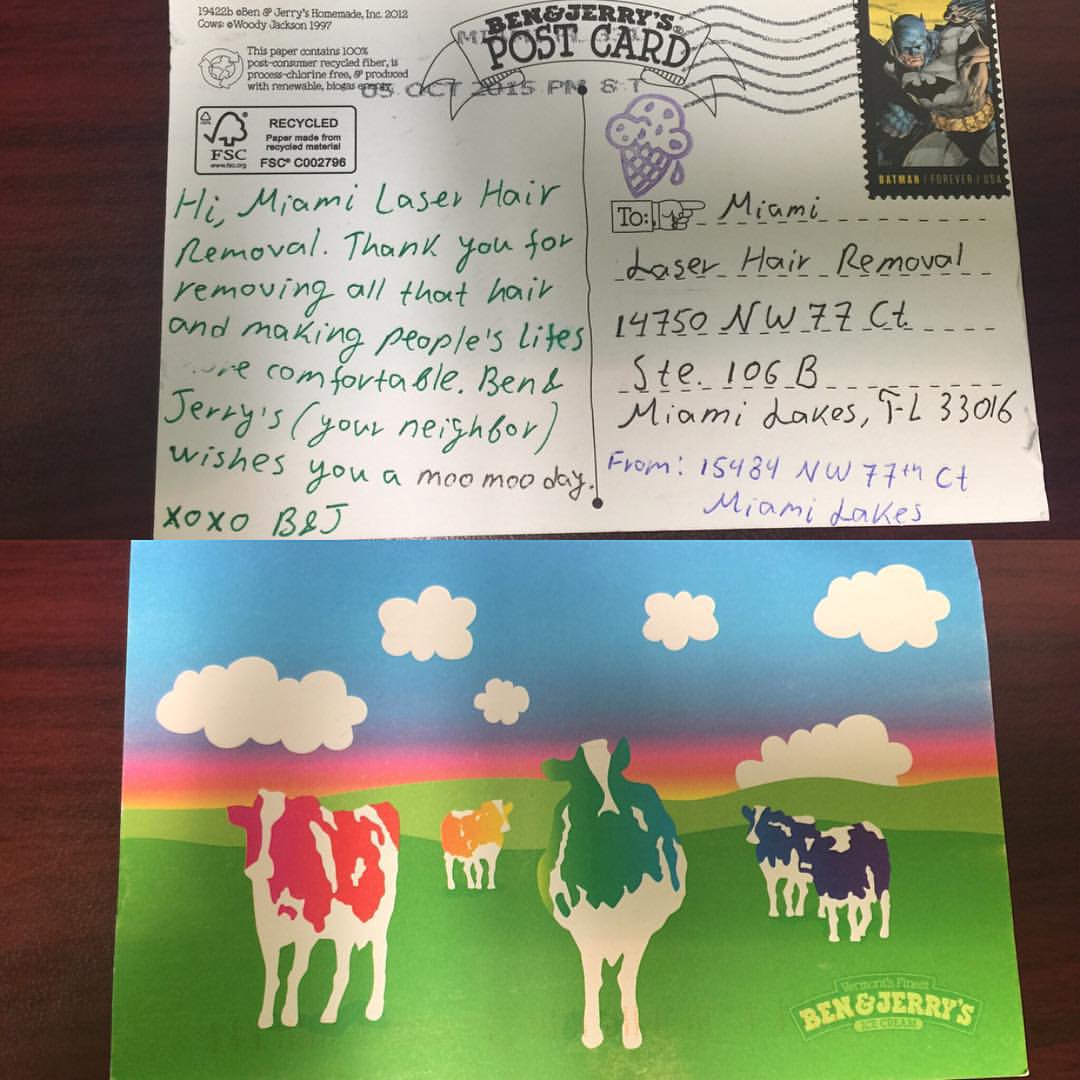 19422b ©Ben & Jerry's Homemade, Inc. 2012
Cows: ©Woody Jackson 1997
This paper contains 100%
post-consumer recycled fiber, is
process-chlorine free, & produced
with renewable, biogas energy.
RECYCLED
Paper made from
recycled material
FSC
www.fsc.org
FSC® C002796
BEN & JERRY'S®
POST CARD
05 OCT 2015 PM 8 T
BATMAN / FOREVER / USA
Hi, Miami Laser Hair
Removal. Thank you for
removing all that hair
and making people's lifes
comfortable. Ben &
Jerry's (your neighbor)
wishes you a moo moo day.
xoxo B&J
To: Miami
Laser Hair Removal
14750 NW 77 Ct.
Ste. 106 B
Miami Lakes, FL 33016
From: 15484 NW 77th Ct
Miami Lakes
Vermont's Finest
BEN & JERRY'S
ICE CREAM